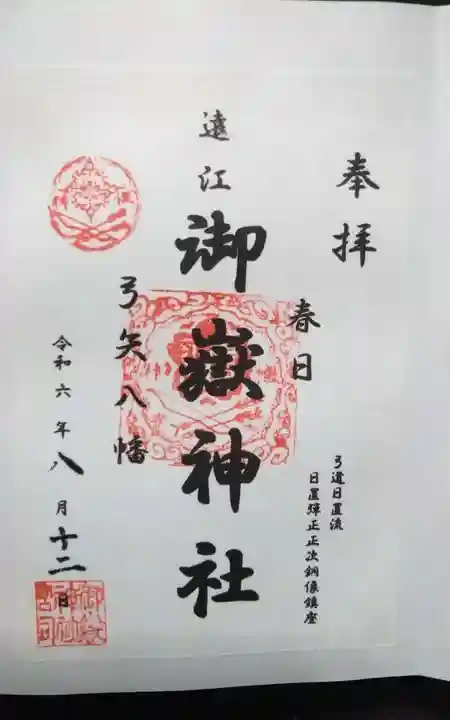 奉拝
春日
弓道日置流
日置弾正正次銅像鎮座
遠江
御嶽神社
弓矢八幡
令和六年八月十二日